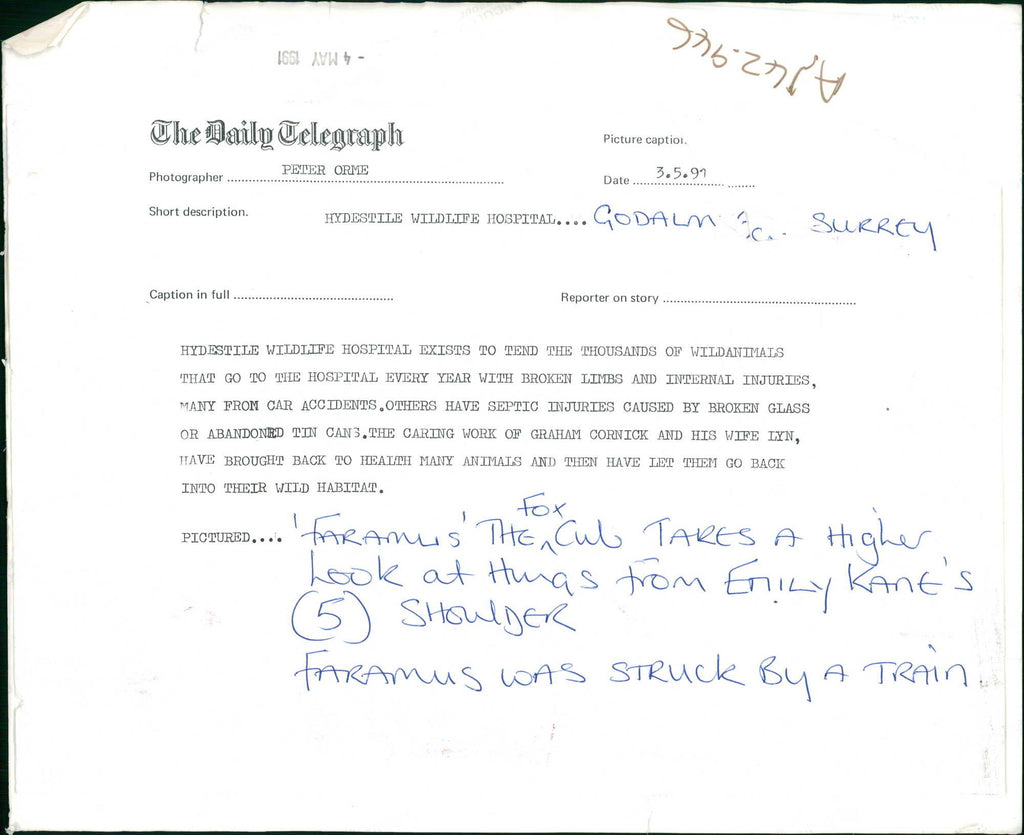 - 4 MAY 1991
A142.946
The Daily Telegraph
Picture caption.
Photographer PETER ORME
Date 3.5.91
Short description.
HYDESTILE WILDLIFE HOSPITAL.... GODALM SURREY
Caption in full
Reporter on story
HYDESTILE WILDLIFE HOSPITAL EXISTS TO TEND THE THOUSANDS OF WILDANIMALS
THAT GO TO THE HOSPITAL EVERY YEAR WITH BROKEN LIMBS AND INTERNAL INJURIES,
MANY FROM CAR ACCIDENTS.OTHERS HAVE SEPTIC INJURIES CAUSED BY BROKEN GLASS
OR ABANDONED TIN CANS.THE CARING WORK OF GRAHAM CORNICK AND HIS WIFE LYN,
HAVE BROUGHT BACK TO HEALTH MANY ANIMALS AND THEN HAVE LET THEM GO BACK
INTO THEIR WILD HABITAT.
PICTURED.... 'FARAMUS' THE FOX Cub TAKES A Higher
Look at things from EMILY KANE'S
(5) SHOULDER
FARAMUS WAS STRUCK BY A TRAIN.